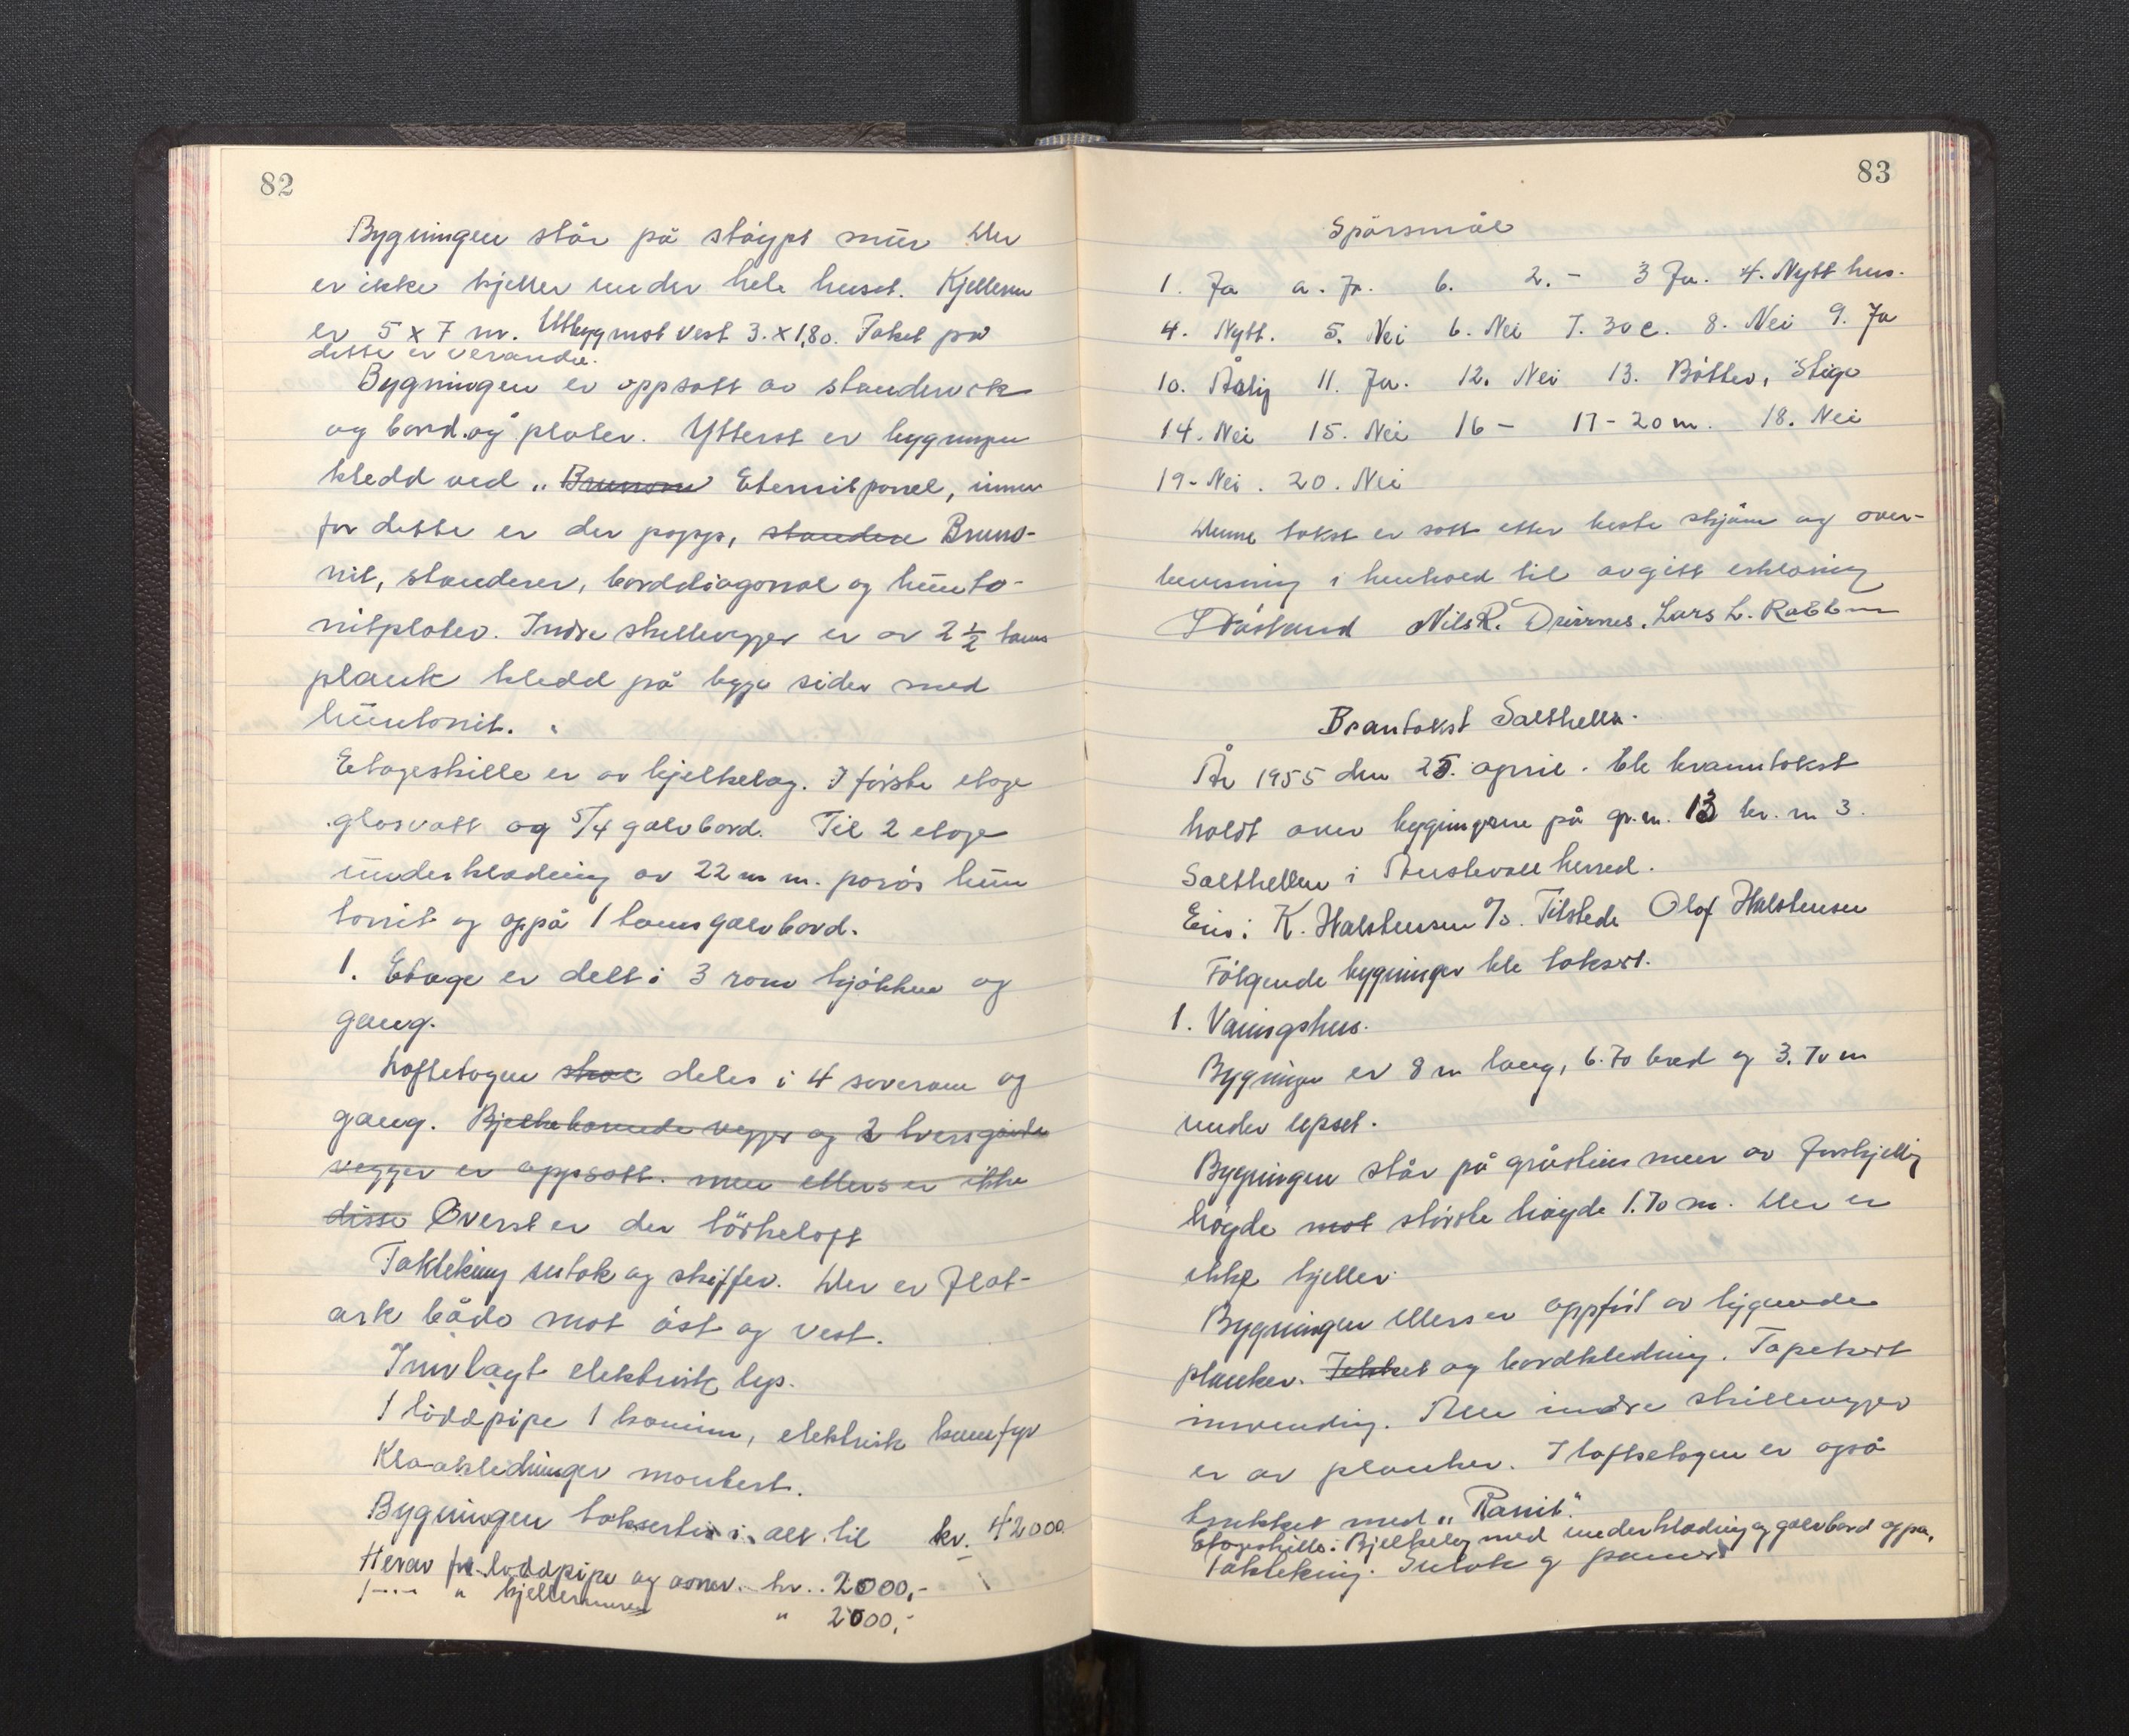 82
Bygningen står på støypt mur Der
er ikke kjeller under hele huset. Kjelleren
er 5 x 7 m. Utbygg mot vest 3. x 1,80. Taket på
dette er veranda.
Bygningen er oppsatt av standerverk
og bord og plater. Ytterst er bygningen
kledd ved „ Brunom Eternitpanel, innen
for dette er der papp, standere Bruno-
nit, standerer, borddiagonal og hunto-
nitplater. Indre skillevegger er av 2 1/2 toms
plank kledd på begge sider med
huntonit.
Etageskille er av bjelkelag. I første etage
glasvatt og 5/4 golvbord. Til 2 etage
underkledning av 22 m m. porøs hun
tonit og oppå 1 toms golvbord.
1. Etage er delt i 3 rom kjøkken og
gang.
Loftetagen skal deles i 4 soverom og
gang. Bjelkebærende vegger og 2 tversgående
vegger er oppsatt. men ellers er ikke
disse Øverst er der tørkeloft
Taktekking sutak og skiffer. Der er Flat-
ark både mot øst og vest.
Innlagt elektrisk lys.
1 løddpipe 1 kamin, elektrisk komfyr
Kloakledninger montert.
Bygningen takseres i alt til kr. 42000
Herav for løddpipe og annet kr. . 2000,-
" kjellermuren " 2000,-
83
Spørsmål
1. Ja a. Ja. b. 2. - 3 Ja. 4. Nytt hus.
4. Nytt. 5. Nei 6. Nei 7. 30 c. 8. Nei 9. Ja
10. Årlig 11. Ja. 12. Nei 13. Bøtter, Stige
14. Nei 15. Nei 16 - 17 - 20 m. 18. Nei
19 - Nei. 20. Nei
Denne takst er satt etter beste skjønn og over-
bevisning i henhold til avgitt erklæring
Nils R. Drivnes. Lars L. Rabben
Brantakst Salthella.
År 1955 den 25. april. ble branntakst
holdt over bygningene på gr. n. 13 br. n 3.
Salthellen i Austevoll herred.
Eier: K. Halstensen A/S. Tilstede Olaf Halstensen
Følgende bygninger ble taksert.
1. Vaningshus.
Bygningen er 8 m lang, 6.70 bred og 3.70 m
under lepset.
Bygningen står på gråsteins mur av forskjellig
høgde mot største høgde 1.70 m. Der er
ikke kjeller.
Bygningen ellers er oppført av liggende
planker. Tekket og bordkledning. Tapetsert
innvendig. Alle indre skillevegger
er av planker. I loftsetagen er også
trukket med „Ranit".
Etageskille: Bjelkelag med underkledning og golvbord oppå.
Taktekking. Sutak og panner